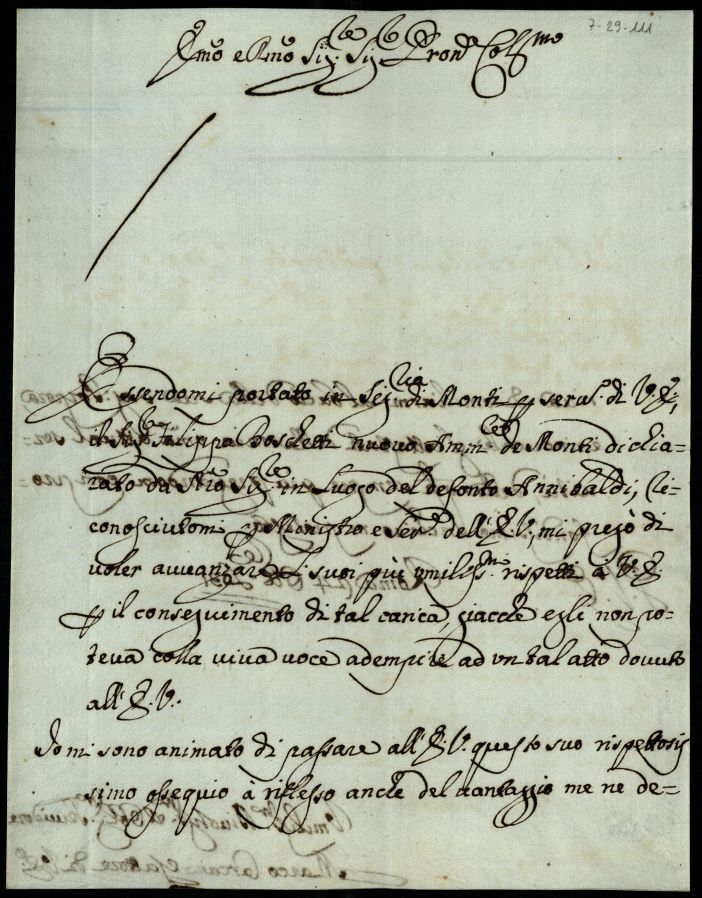 7-29-111
Emo e Rmo Sig.re Sig.re Pron.e Col.mo
Essendomi portato in Seg.ria di Monti p serv.o di V.E.,
il Sig.re Filippo Boschetti nuovo Amm.re de Monti dichia=
rato da Nro Sig.re in luogo del defonto Annibaldi, ri=
conosciutomi p Ministro e Ser.re dell'E.V., mi pregò di
voler avvanzare li suoi più umiliss.mi rispetti à V.E.
p il conseguimento di tal carica, giacche egli non po=
teva colla viva voce adempire ad un tal atto dovuto
all'E.V.
Io mi sono animato di passare all'E.V. questo suo rispettosis
simo ossequio à riflesso anche del vantaggio me ne de=